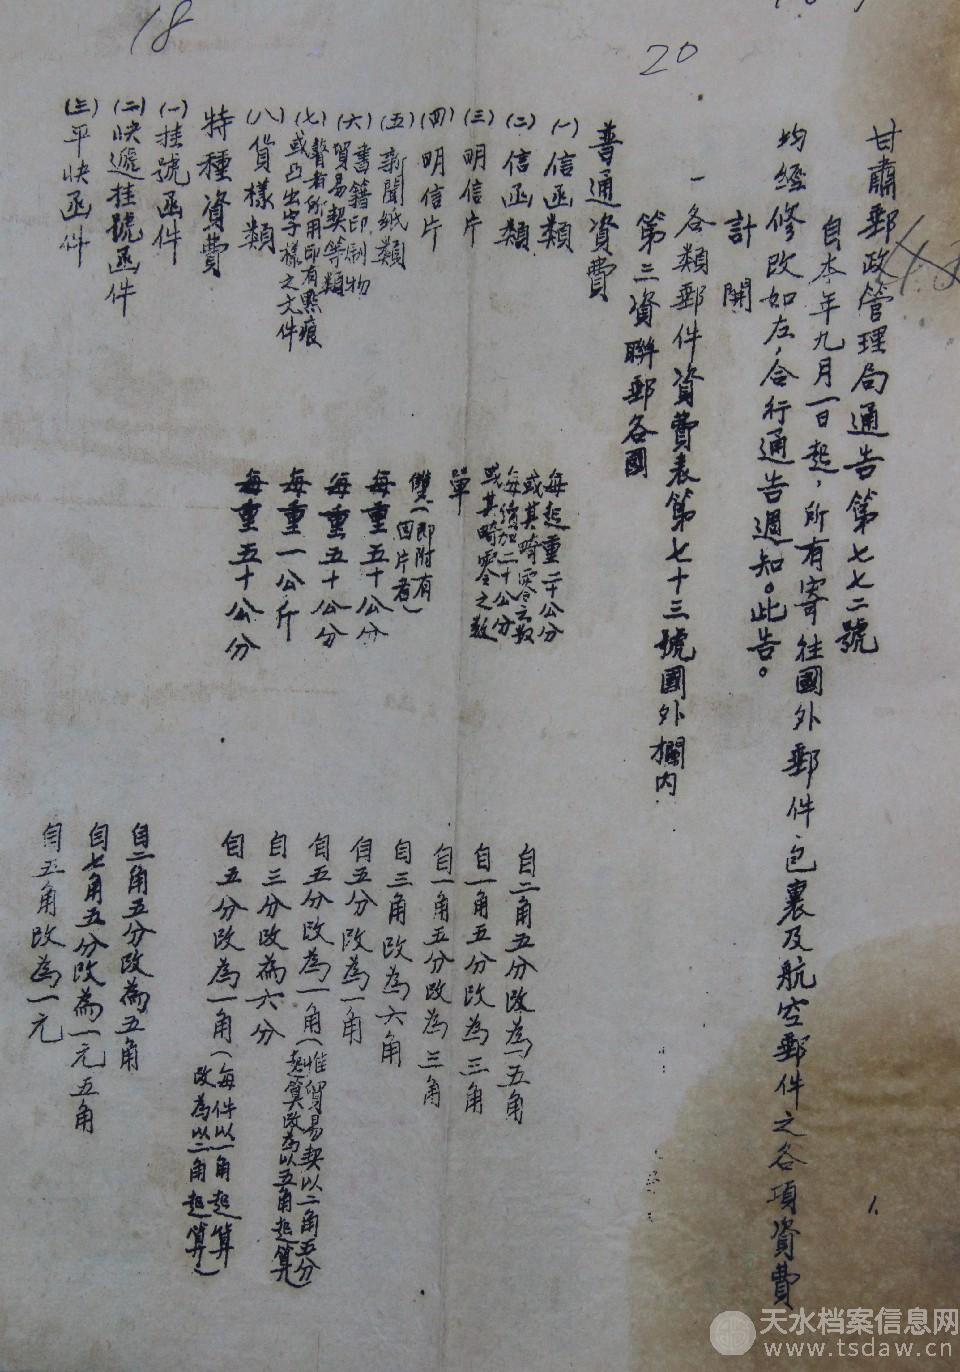 18
20
甘肅郵政管理局通告第七七二號
自本年九月一日起，所有寄往國外郵件包裹及航空郵件之各項資費
均經修改如左，合行通告週知。此告。
計開
一各類郵件資費表第七十三號國外欄內
第三資聯郵各國
普通資費
(一)信函類 每起重二十公分
或其畸零之數 自二角五分改為五角
(二)信函類 每續加二十公分
或其畸零之數 自一角五分改為三角
(三)明信片 單 自一角五分改為三角
(四)明信片 雙(即附有
回片者) 自三角改為六角
(五)新聞紙類 每重五十公分 自五分改為一角
(六)書籍印刷物
貿易契等類 每重五十公分 自五分改為一角(惟貿易契以二角五分
起算改為以五角起算)
(七)瞽者所用印有點痕
或凸出字樣之文件 每重一公斤 自三分改為六分
(八)貨樣類 每重五十公分 自五分改為一角(每件以一角起算
改為以二角起算)
特種資費
(一)挂號函件 自二角五分改為五角
(二)快遞挂號函件 自七角五分改為一元五角
(三)平快函件 自五角改為一元
1.
天水档案信息网
www.tsdaw.cn